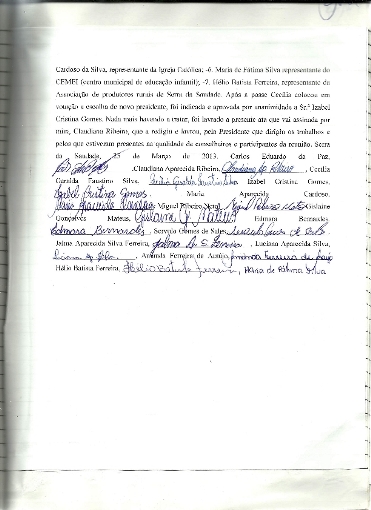 Cardoso da Silva, representante da Igreja Católica; -6. Maria de Fátima Silva representante do
CEMEI (centro municipal de educação infantil); -7. Hélio Batista Ferreira, representante da
Associação de produtores rurais de Serra da Saudade. Após a posse Cecília colocou em
votação a escolha do novo presidente, foi indicada e aprovada por unanimidade a Sr.ª Izabel
Cristina Gomes. Nada mais havendo a tratar, foi lavrado a presente ata que vai assinada por
mim, Claudiana Ribeiro, que a redigiu e lavrou, pela Presidente que dirigiu os trabalhos e
pelos que estiveram presentes na qualidade de conselheiros e participantes da reunião. Serra
da Saudade, 25 de Março de 2013. Carlos Eduardo da Paz,
.Claudiana Aparecida Ribeiro, , Cecília
Geralda Faustino Silva, Izabel Cristina Gomes,
Izabel Cristina Gomes. Maria Aparecida Cardoso,
Miguel Ribeiro Neto, Gislaine
Gonçalves Mateus, Edmara Bernardes,
Edmara Bernardes, Servulo Gomes de Sales,
Jalma Aparecida Silva Ferreira, , Luciana Aparecida Silva,
, Amanda Ferreira de Araújo, Amanda Ferreira de Araújo
Hélio Batista Ferreira, Hélio Batista Ferreira, Maria de Fátima Silva